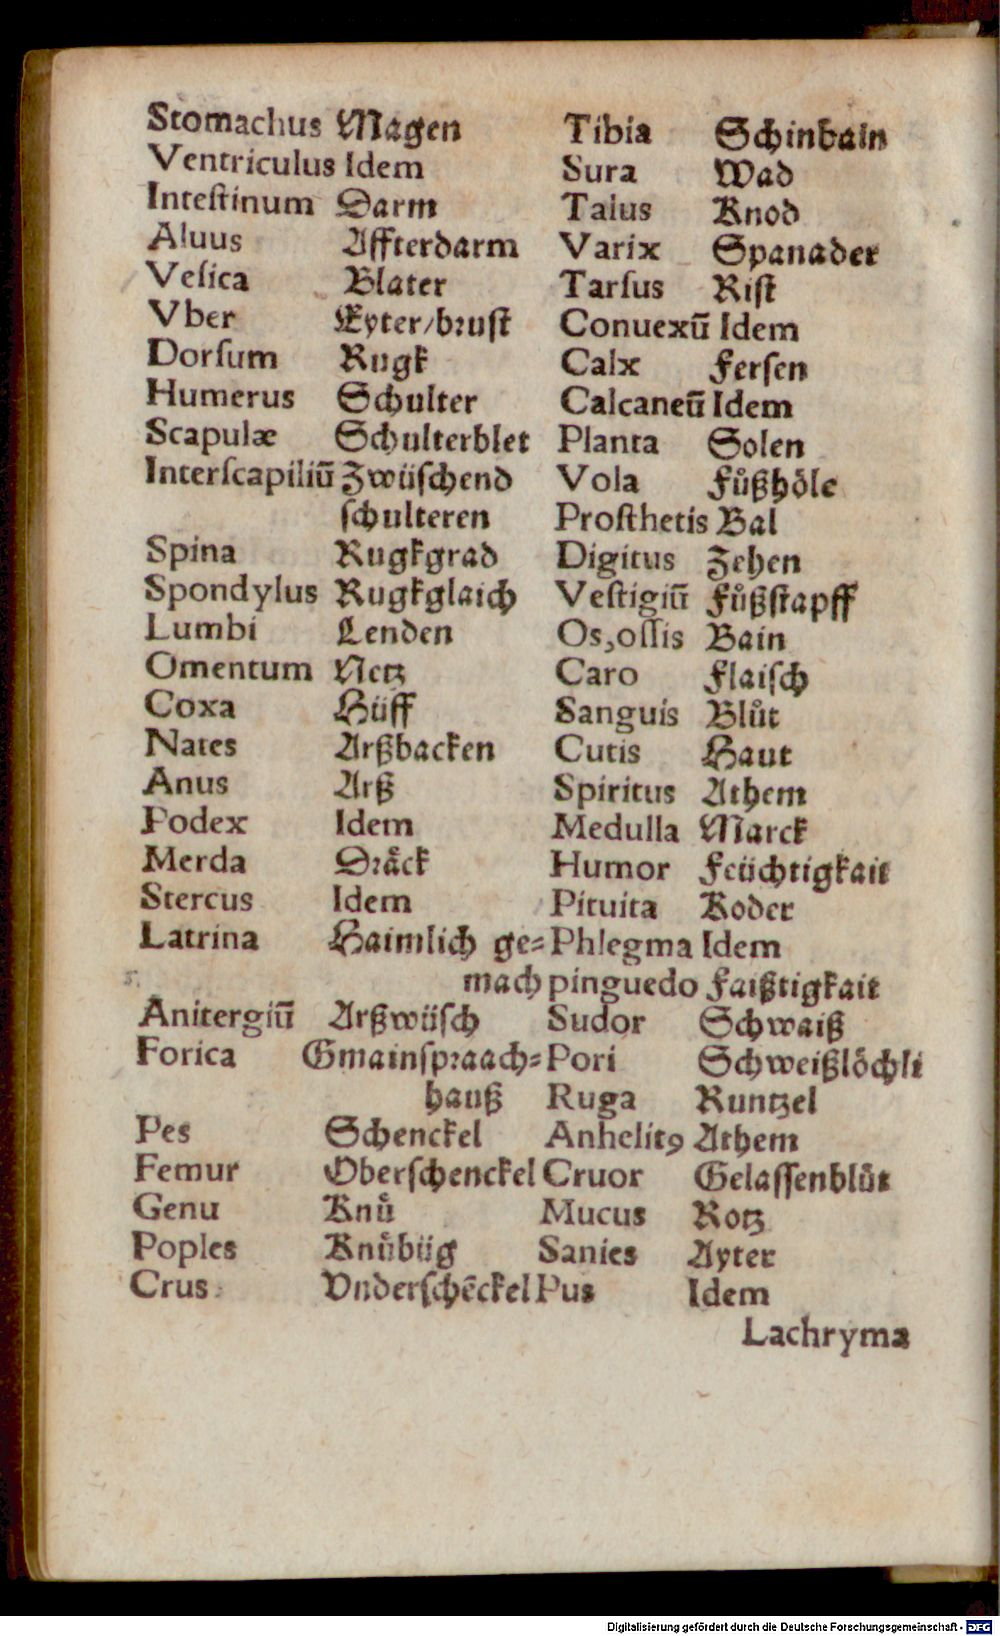 Stomachus Magen
Ventriculus Idem
Inteſtinum Darm
Aluus Affterdarm
Veſica Blater
Vber Eyter/bꝛuſt
Dorſum Rugk
Humerus Schulter
Scapulæ Schulterblet
Interſcapiliū Zwüſchend
ſchulteren
Spina Rugkgrad
Spondylus Rugkglaich
Lumbi Lenden
Omentum Netz
Coxa Hüff
Nates Arßbacken
Anus Arß
Podex Idem
Merda Dꝛaͤck
Stercus Idem
Latrina Haimlich ge⸗
mach
Anitergiū Arßwüſch
Forica Gmainſpꝛaach⸗
hauß
Pes Schenckel
Femur Oberſchenckel
Genu Knuͤ
Poples Knuͤbüg
Crus Vnderſchēckel
Tibia Schinbain
Sura Wad
Talus Knod
Varix Spanader
Tarſus Riſt
Conuexū Idem
Calx Ferſen
Calcaneū Idem
Planta Solen
Vola Fuͤßhoͤle
Proſthetis Bal
Digitus Zehen
Veſtigiū Fuͦßſtapff
Os,oſſis Bain
Caro Flaiſch
Sanguis Bluͦt
Cutis Haut
Spiritus Athem
Medulla Marck
Humor Feüchtigkait
Pituita Koder
Phlegma Idem
pinguedo Faißtigkait
Sudor Schwaiß
Pori Schweißloͤchli
Ruga Runtzel
Anhelitꝰ Athem
Cruor Gelaſſenbluͦt
Mucus Rotz
Sanies Ayter
Pus Idem
Lachryma
Digitalisierung gefördert durch die Deutsche Forschungsgemeinschaft - DFG